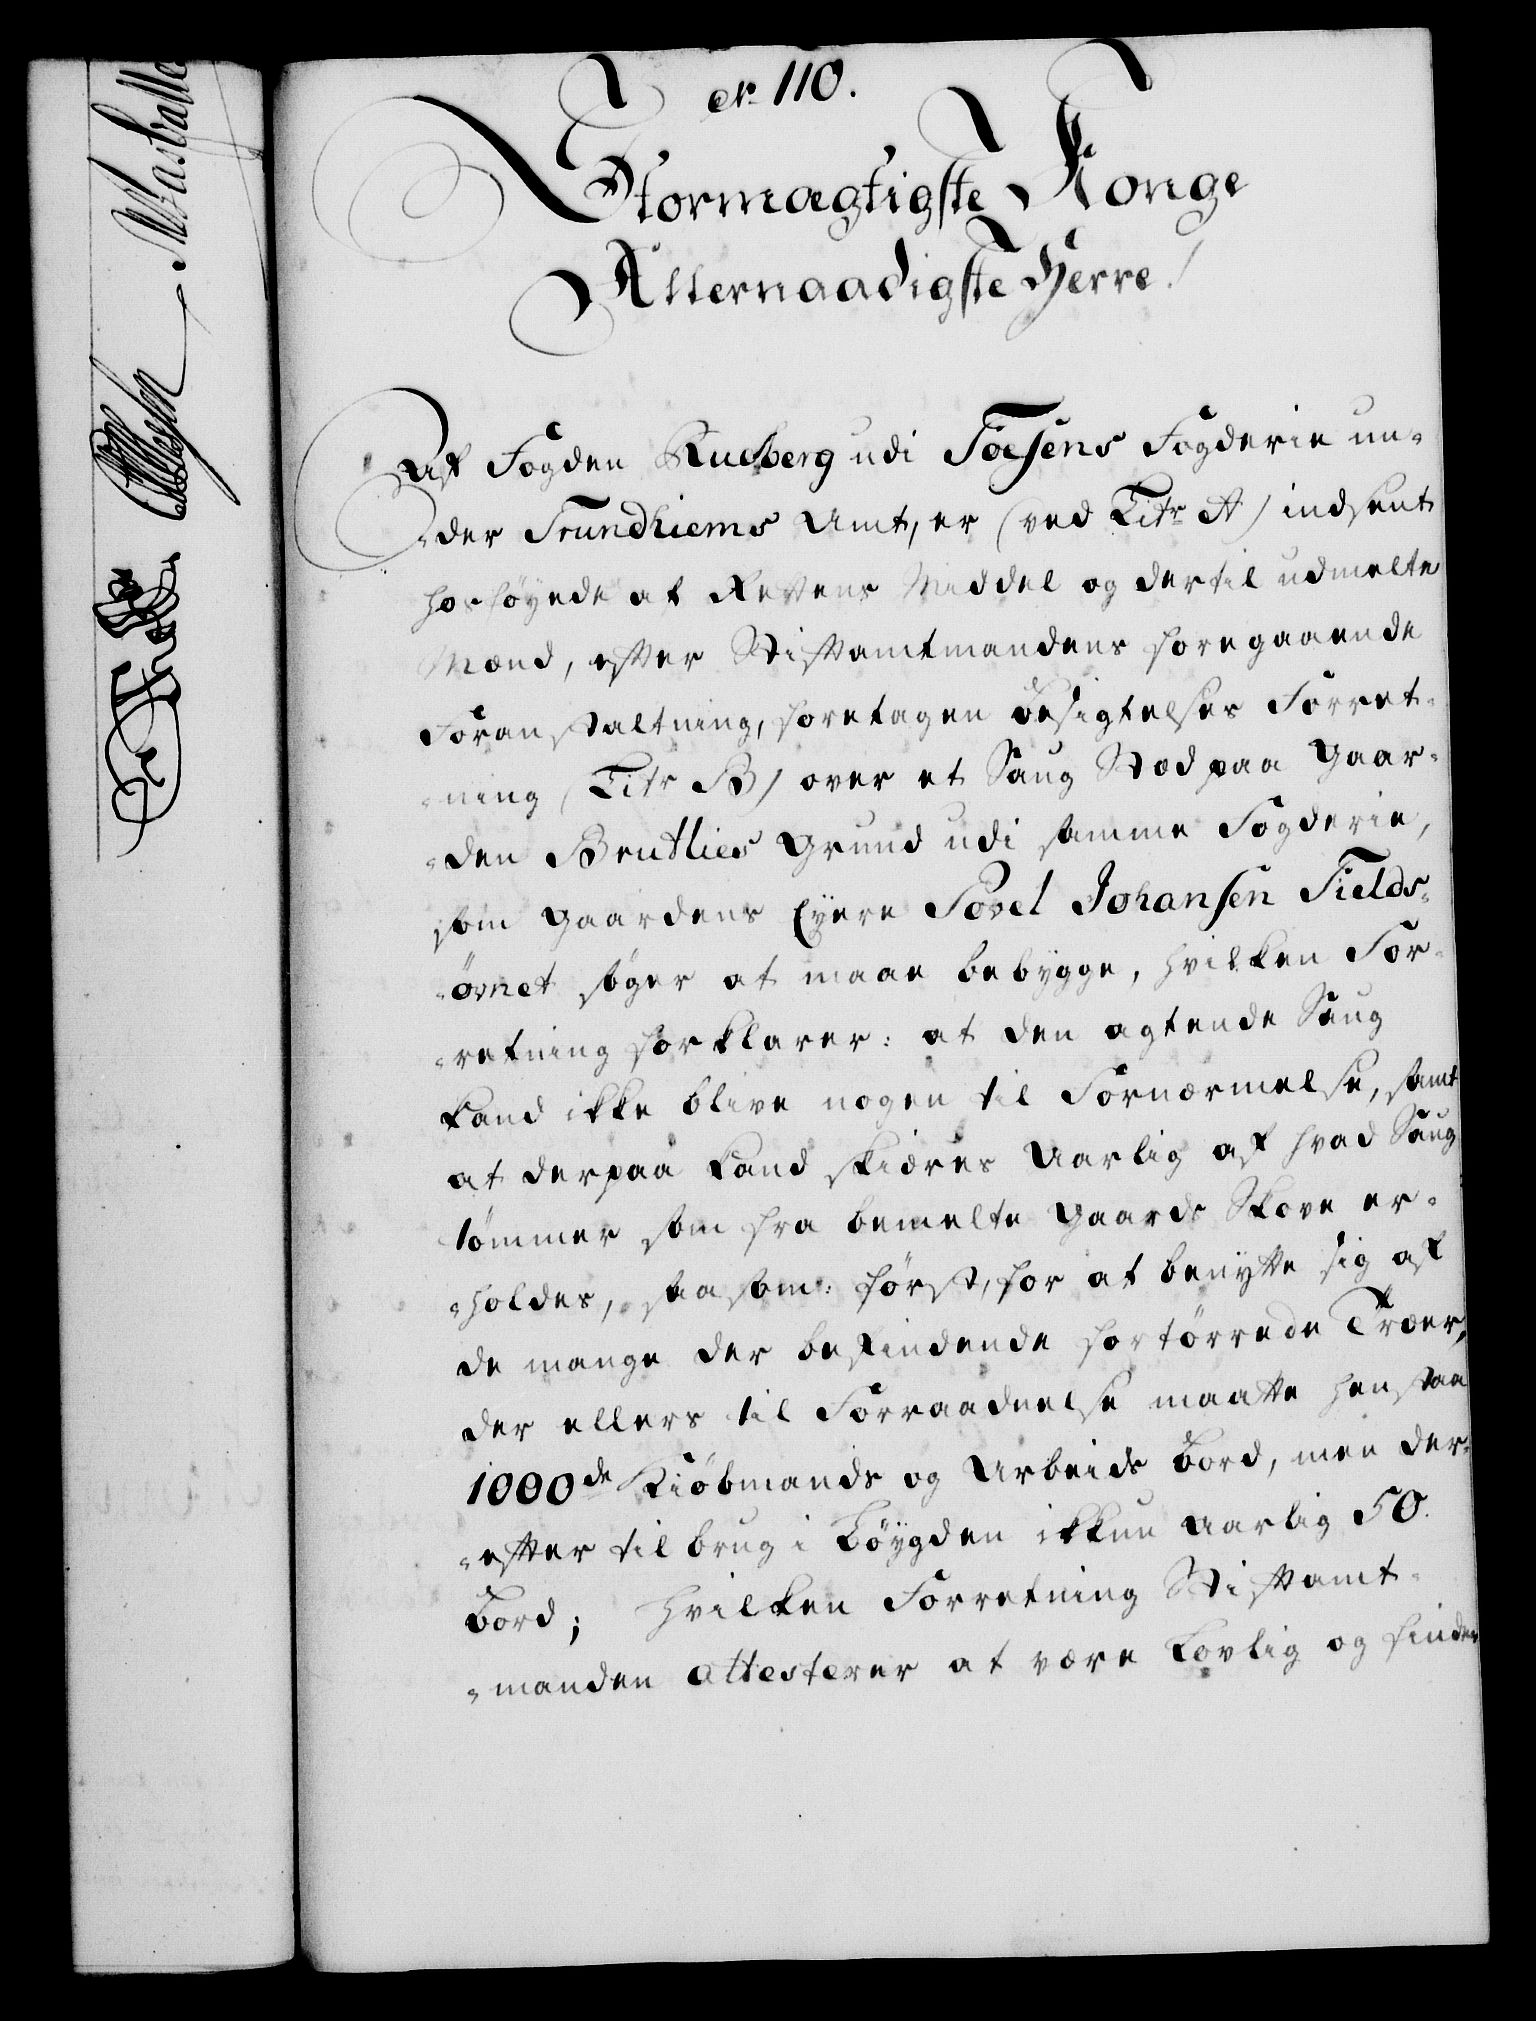 N 110.
Stormægtigste Konge
Allernaadigste Herre!
Af Fogden Rusberg udi Foesens Fogderie un-
-der Trundhiems Amt, er (ved Litr A) indsent
hosføyede af Rettens Middel og dertil udmelte
Mænd, efter Stiftamtmandens foregaaende
Foranstaltning, foretagen Besigtelses Forret-
-ning (Litr B) over et Saug Stæd paa Gaar-
-den Brutlies Grund udi samme Fogderie,
som Gaardens Eyere Povel Johansen Fields-
-øvnet søger at maae bebygge, hvilken For-
-retning forklarer: at den agtende Saug
kand ikke blive nogen til Fornærmelse, samt
at derpaa kand skiæres Aarlig af hvad Saug
tømmer som fra bemelte Gaards Skove er-
-holdes, saasom: først, for at benytte sig af
de mange der befindende fortørrede Træer,
der ellers til Forraadnelse maatte henstaa
1000de Kiøbmands og Arbeids Bord, men der-
-efter til brug i Bøygden ikkun Aarlig 50.
Bord; hvilken Forretning Stiftamt-
-manden attesterer at være Lovlig og finder